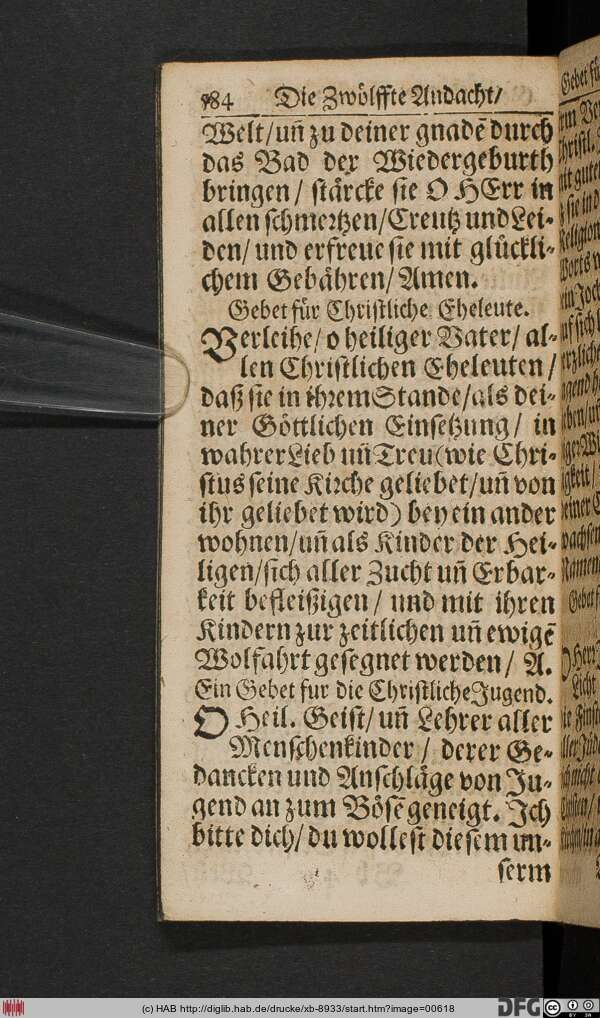 584 Die Zwölffte Andacht/
Welt/uñ zu deiner gnadē durch
das Bad der Wiedergeburth
bringen/ stärcke sie O HErr in
allen schmertzen/Creutz und Lei-
den/ und erfreue sie mit glückli-
chem Gebähren/Amen.
Gebet für Christliche Eheleute.
Verleihe/o heiliger Vater/ al-
len Christlichen Eheleuten/
daß sie in ihrem Stande/als dei-
ner Göttlichen Einsetzung/ in
wahrer Lieb uñ Treu (wie Chri-
stus seine Kirche geliebet/uñ von
ihr geliebet wird) bey ein ander
wohnen/uñ als Kinder der Hei-
ligen/sich aller Zucht uñ Erbar-
keit befleißigen/ und mit ihren
Kindern zur zeitlichen uñ ewigē
Wolfahrt gesegnet werden/ A.
Ein Gebet fur die Christliche Jugend.
O Heil. Geist/ uñ Lehrer aller
Menschenkinder/ derer Ge-
dancken und Anschläge von Ju-
gend an zum Bösē geneigt. Ich
bitte dich/ du wollest diesem un-
serm
(c) HAB http://diglib.hab.de/drucke/xb-8933/start.htm?image=00618
DFG
CC
BY SA